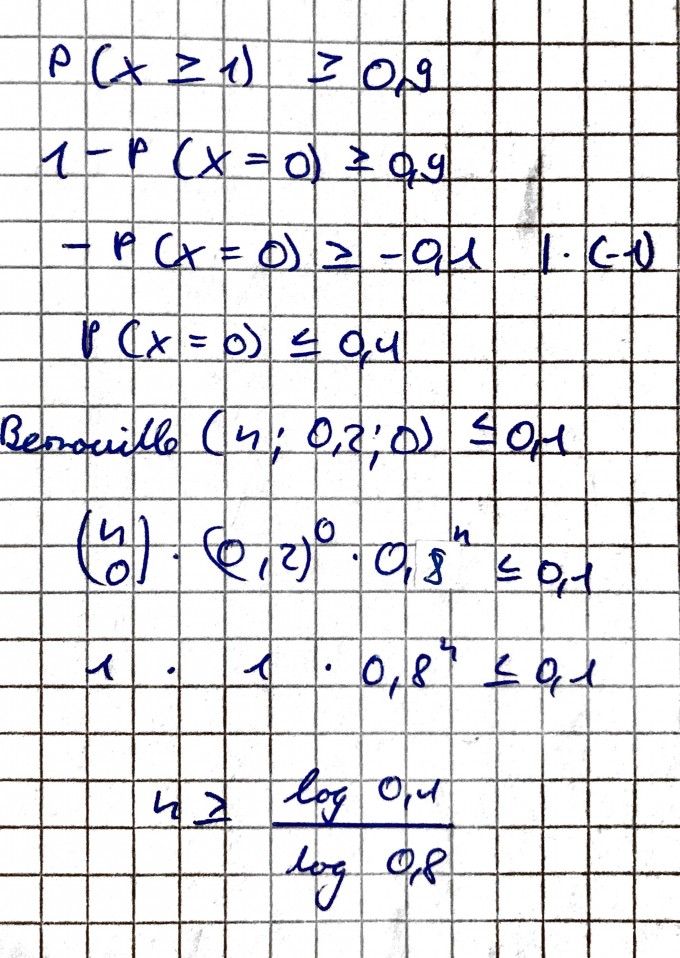 P (X ≥ 1) ≥ 0,9
1 - P (X = 0) ≥ 0,9
- P (X = 0) ≥ - 0,1 | · (-1)
P (X = 0) ≤ 0,1
Bernouille (n; 0,2; 0) ≤ 0,1
(n 0) · (0,2)⁰ · 0,8ⁿ ≤ 0,1
1 · 1 · 0,8ⁿ ≤ 0,1
n ≥ log 0,1
log 0,8